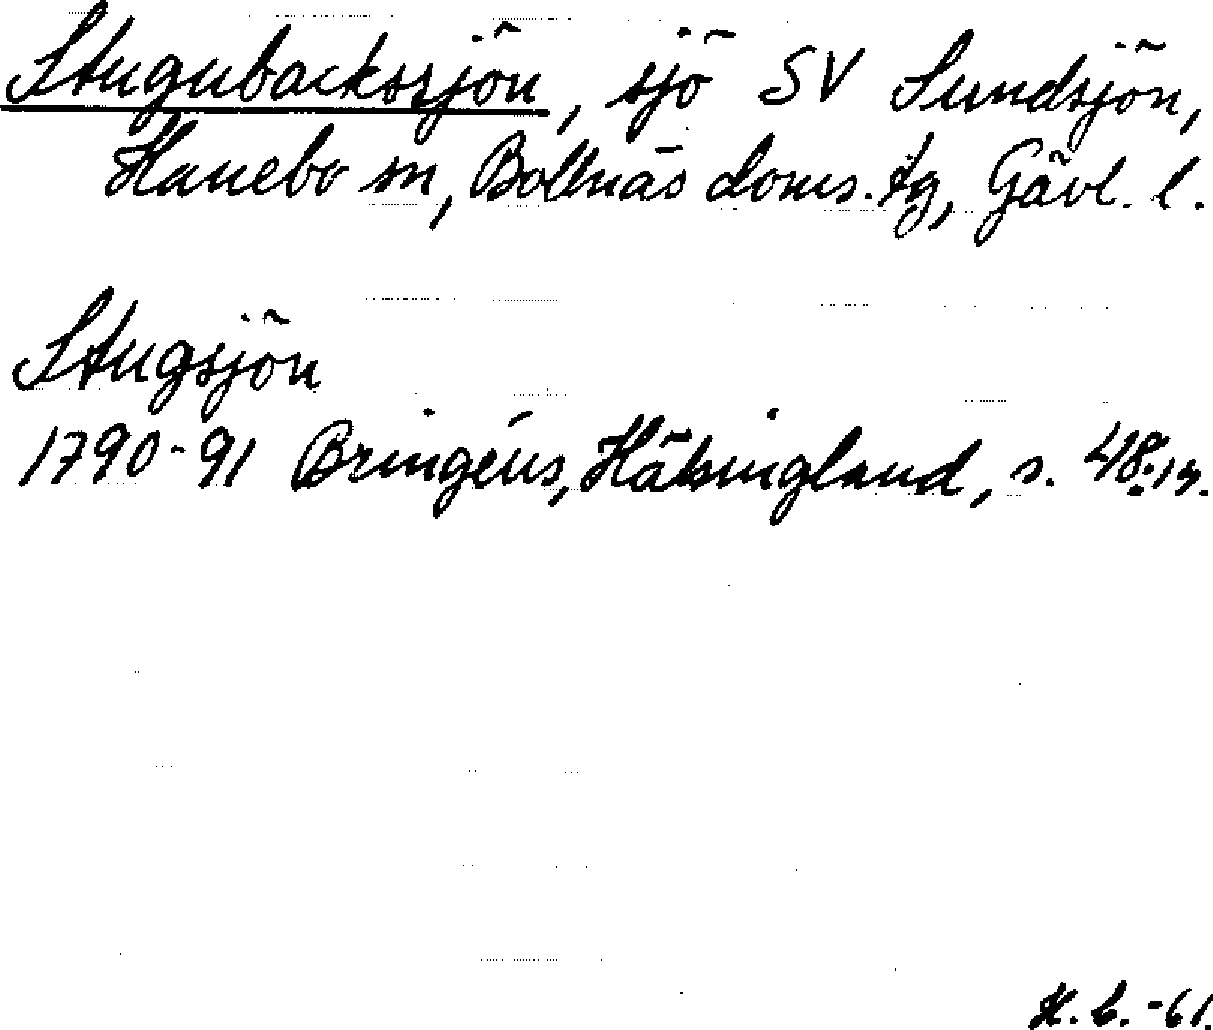 Stugubackssjön, sjö SV Sundsjön,
Hanebo sn, Bollnäs doms. tg, Gävl. l.
Stugsjön
1790-91 Bringéus, Hälsingland, s. 48.
H. b. -61.